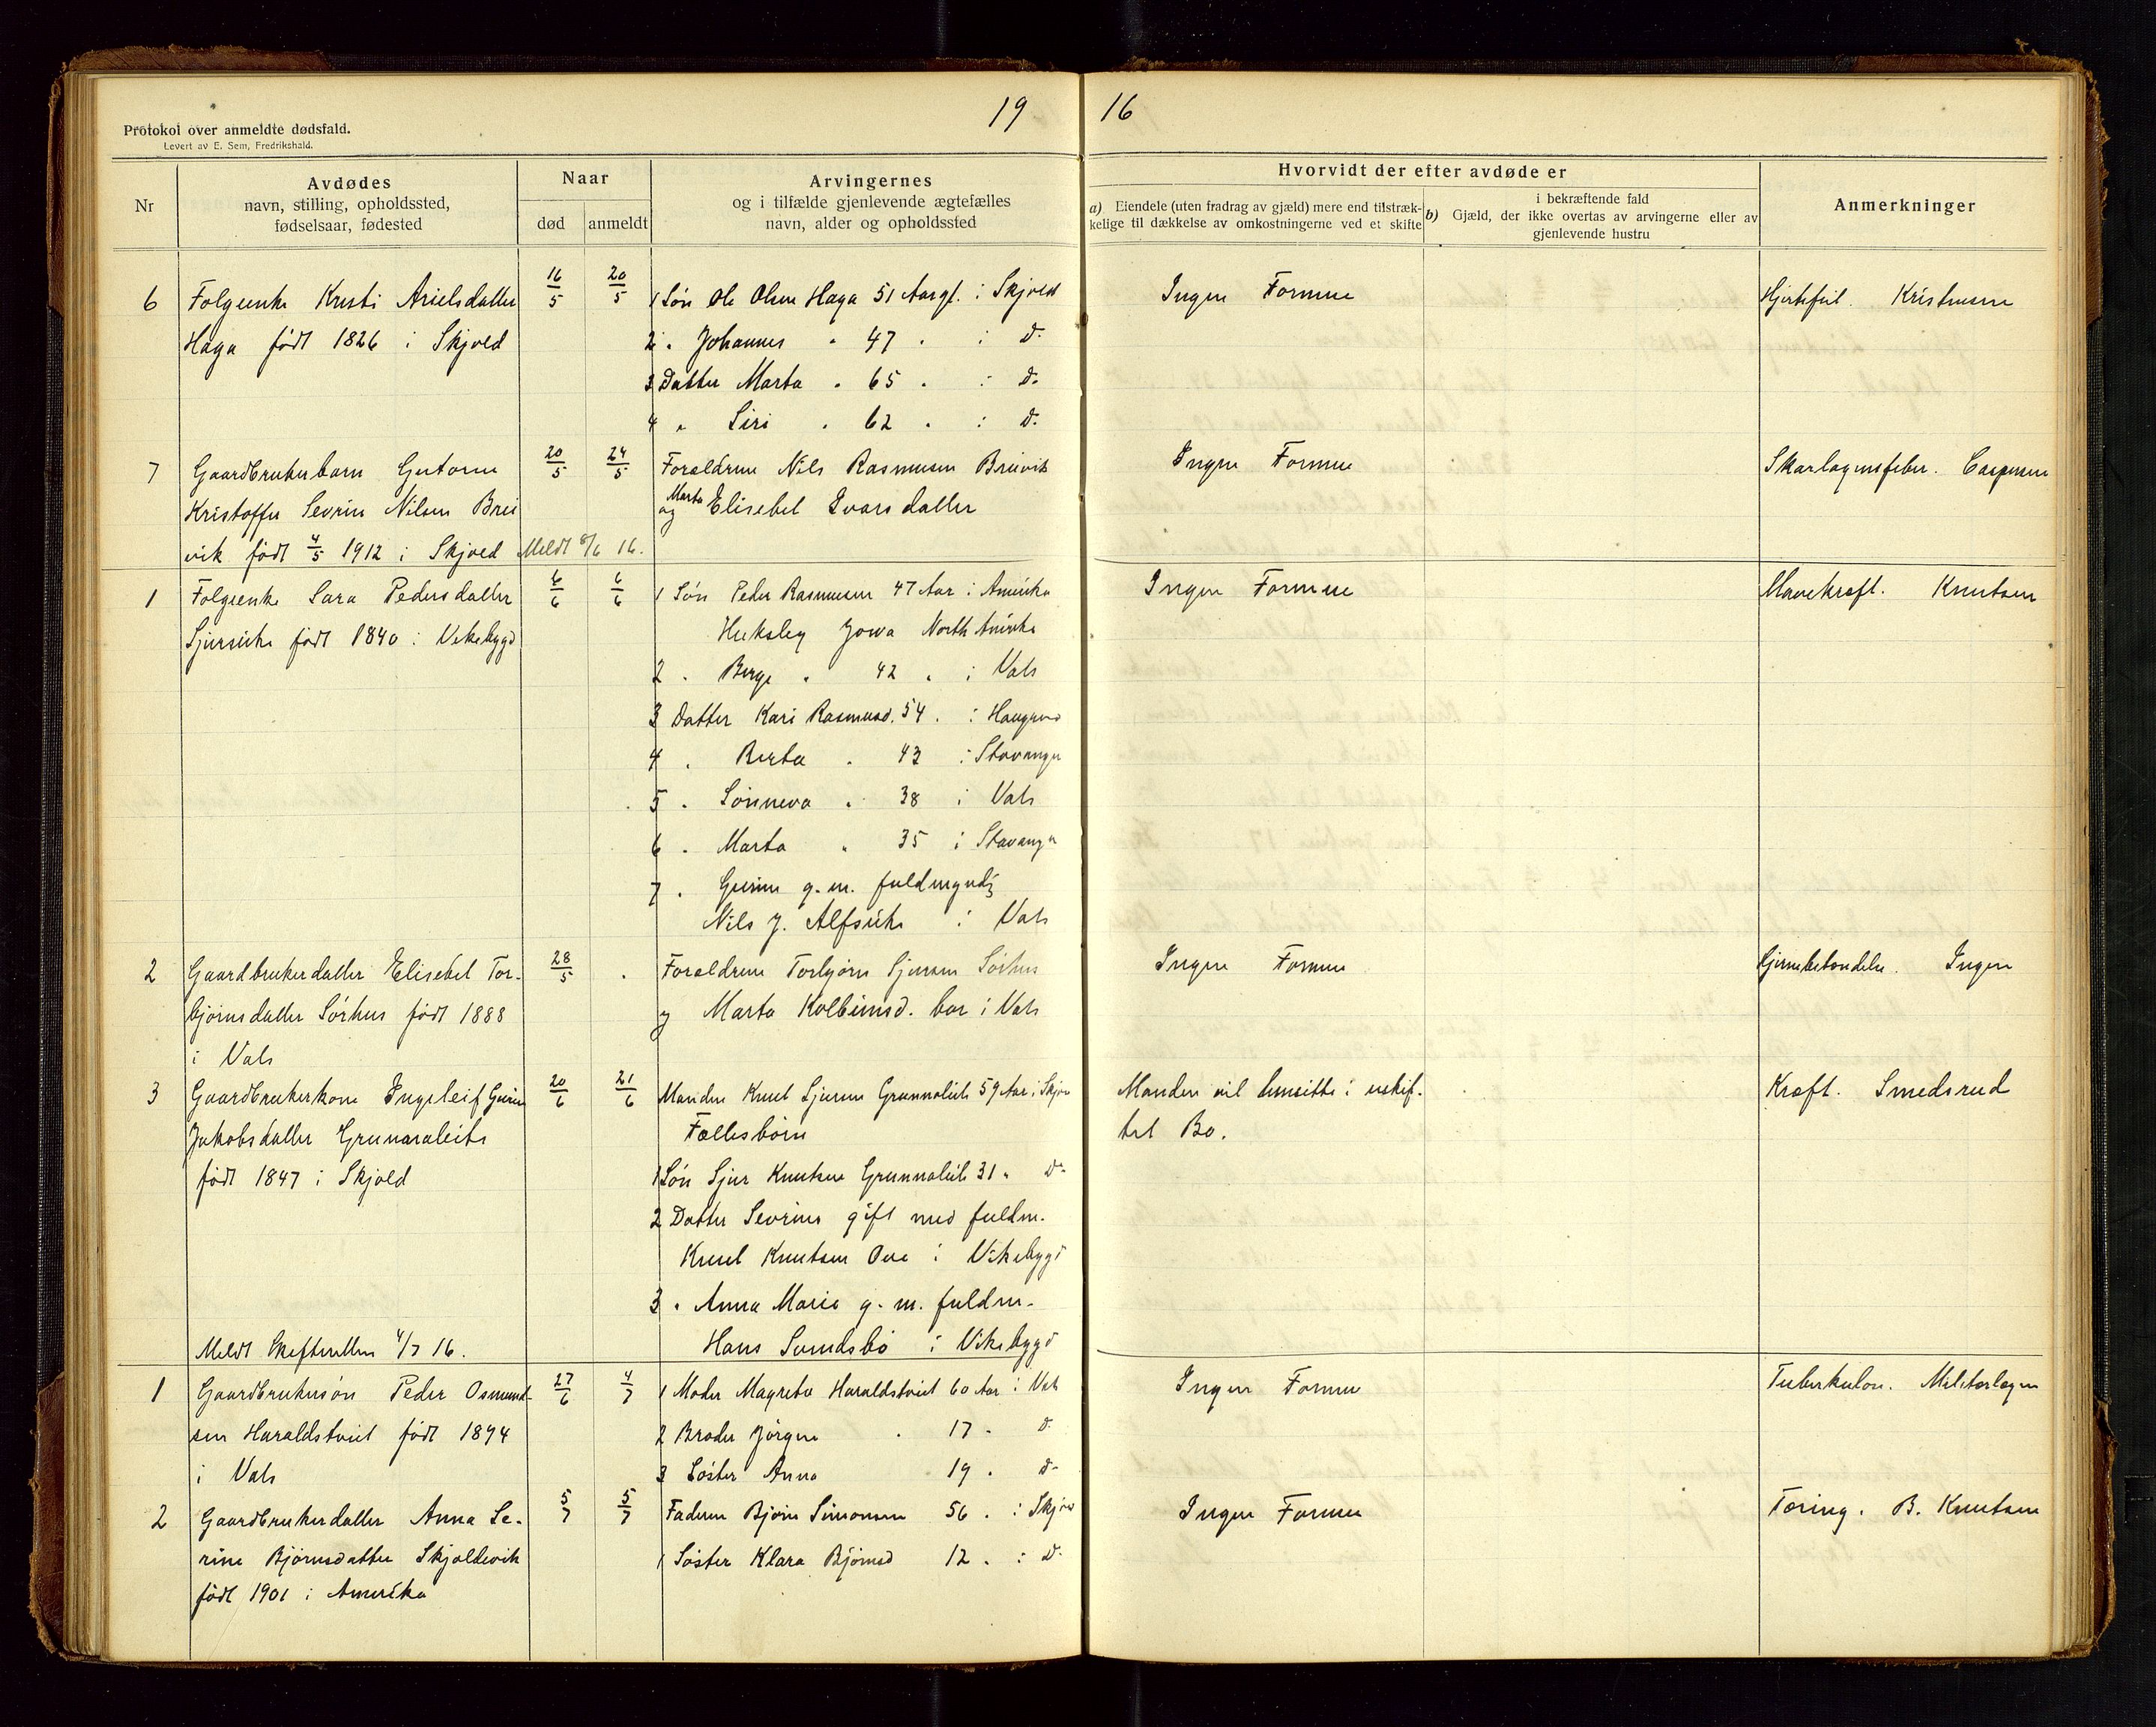 19 16
Protokol over anmeldte dødsfald.
Levert av E. Sem, Fredrikshald.
Nr
Avdødes
navn, stilling, opholdssted,
fødselsaar, fødested
Naar
død
anmeldt
Arvingernes
og i tilfælde gjenlevende ægtefælles
navn, alder og opholdssted
Hvorvidt der efter avdøde er
a) Eiendele (uten fradrag av gjæld) mere end tilstræk-
kelige til dækkelse av omkostningerne ved et skifte
b) i bekræftende fald
Gjæld, der ikke overtas av arvingerne eller av
gjenlevende hustru
Anmerkninger
6 Folgeenke Kristi Arielsdatter 16/5 20/5 1 Søn Ole Olsen Haga 51 Aar gl. i Skjold Ingen Formue Hjertefeil. Kristensen
Haga født 1826 i Skjold 2 " Johannes " 47 " i D.
3 Datter Marta " 65 " i D.
4 " Siri " 62 " i D.
7 Gaardbrukerbarn Gutorm 20/5 24/5 Forældrene Nils Rasmusen Breivik Ingen Formue Skarlagensfeber. Caspersen
Kristoffer Sevrin Nilsen Brei og Marta Elisebet Ivarsdatter
vik født 4/5 1912 i Skjold Meldt 8/6 16.
1 Folgeenke Sara Pedersdatter 6/6 6/6 1 Søn Peder Rasmussen 47 Aar i Amerika Ingen Formue Mavekræft. Knutsen
født 1840 i Vikebygd Huksley Jowa North Amerika
2 " Berge " 42 " i Vats
3 Datter Kari Rasmusd. 54 " i Haugesund
4 " Berta " 43 i Stavanger
5 " Sønneva " 38 i Vats
6 " Marta " 35 i Stavanger
7 " g. m. fuldmyndig
Nils J. i Vats
2 Gaardbrukerdatter Elisebet Tor- 28/5 " Forældrene Torbjørn Sjursen Sørhus Ingen Formue Hjernebetændelse. Ingen
bjørnsdatter Sørhus født 1888 og Marta Kolbeinsd. bor i Vats
i Vats
3 Gaardbrukerkone Ingeleif 20/6 21/6 Manden Knut Sjursen 59 Aar i Skjold Manden vil hensitte i uskif- Kræft. Smedsrud
Jakobsdatter Fællesbørn tet Bo.
født 1847 i Skjold 1 Søn Sjur Knutsen 31 " D.
2 Datter Sevrine gift med fuldm.
Knut Knutsen i Vikebygd
3 " Anna Marie g. m. fuldm.
Meldt Skifteretten 4/7 16. Hans i Vikebygd
1 Gaardbrukersøn Peder Osmund- 27/6 4/7 1 Moder Magreta Haraldstveit 60 Aar i Vats Ingen Formue Tuberkulose. Militærlægen
sen Haraldstveit født 1894 2 Broder Jørgen " 17 " D.
i Vats 3 Søster Anna " 19 " D.
2 Gaardbrukerdatter Anna Se- 5/7 5/7 Faderen Bjørn Simonsen 56 " i Skjold Ingen Formue Tæring. B. Knutsen
rine Bjørnsdatter Skjoldevik 1 Søster Klara Bjørnsd 12 " i D.
født 1901 i Amerika